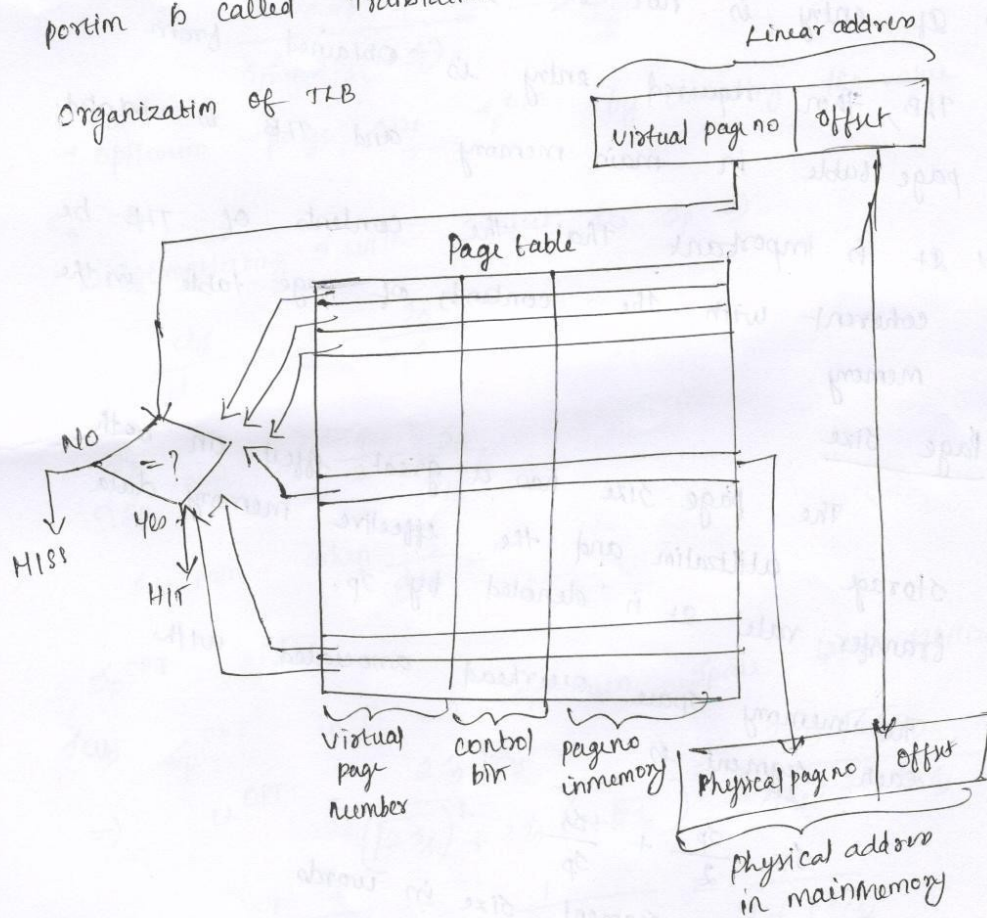 portion is called
Organization of TLB
Linear address
Virtual page no offset
Page table
No
= ?
Yes
MISS
HIT
Virtual page number
control bits
page no in memory
Physical page no offset
Physical address in main memory